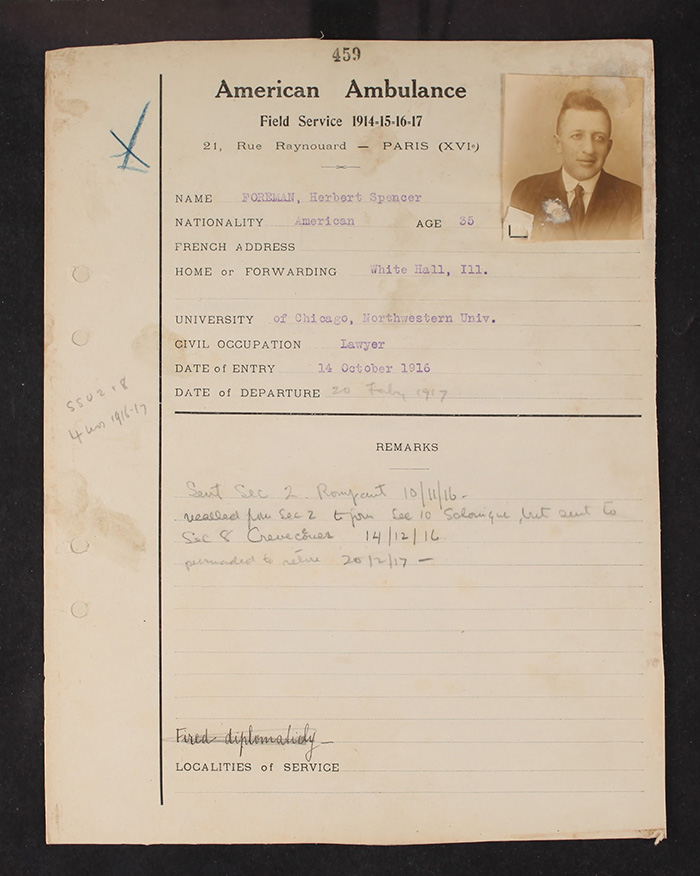 459
American Ambulance
Field Service 1914-15-16-17
21, Rue Raynouard — PARIS (XVIe)
NAME FOREMAN, Herbert Spencer
NATIONALITY American AGE 35
FRENCH ADDRESS
HOME or FORWARDING White Hall, Ill.
UNIVERSITY of Chicago, Northwestern Univ.
CIVIL OCCUPATION Lawyer
DATE of ENTRY 14 October 1916
DATE of DEPARTURE 20 Feby 1917
SSU 2 & 8
4 mos 1916-17
REMARKS
Sent Sec 2 Rampont 10/11/16 -
recalled from Sec 2 to join Sec 10 Salonique, but sent to
Sec 8 14/12/16
persuaded to retire 20/2/17 —
Fired diplomaticly —
LOCALITIES of SERVICE